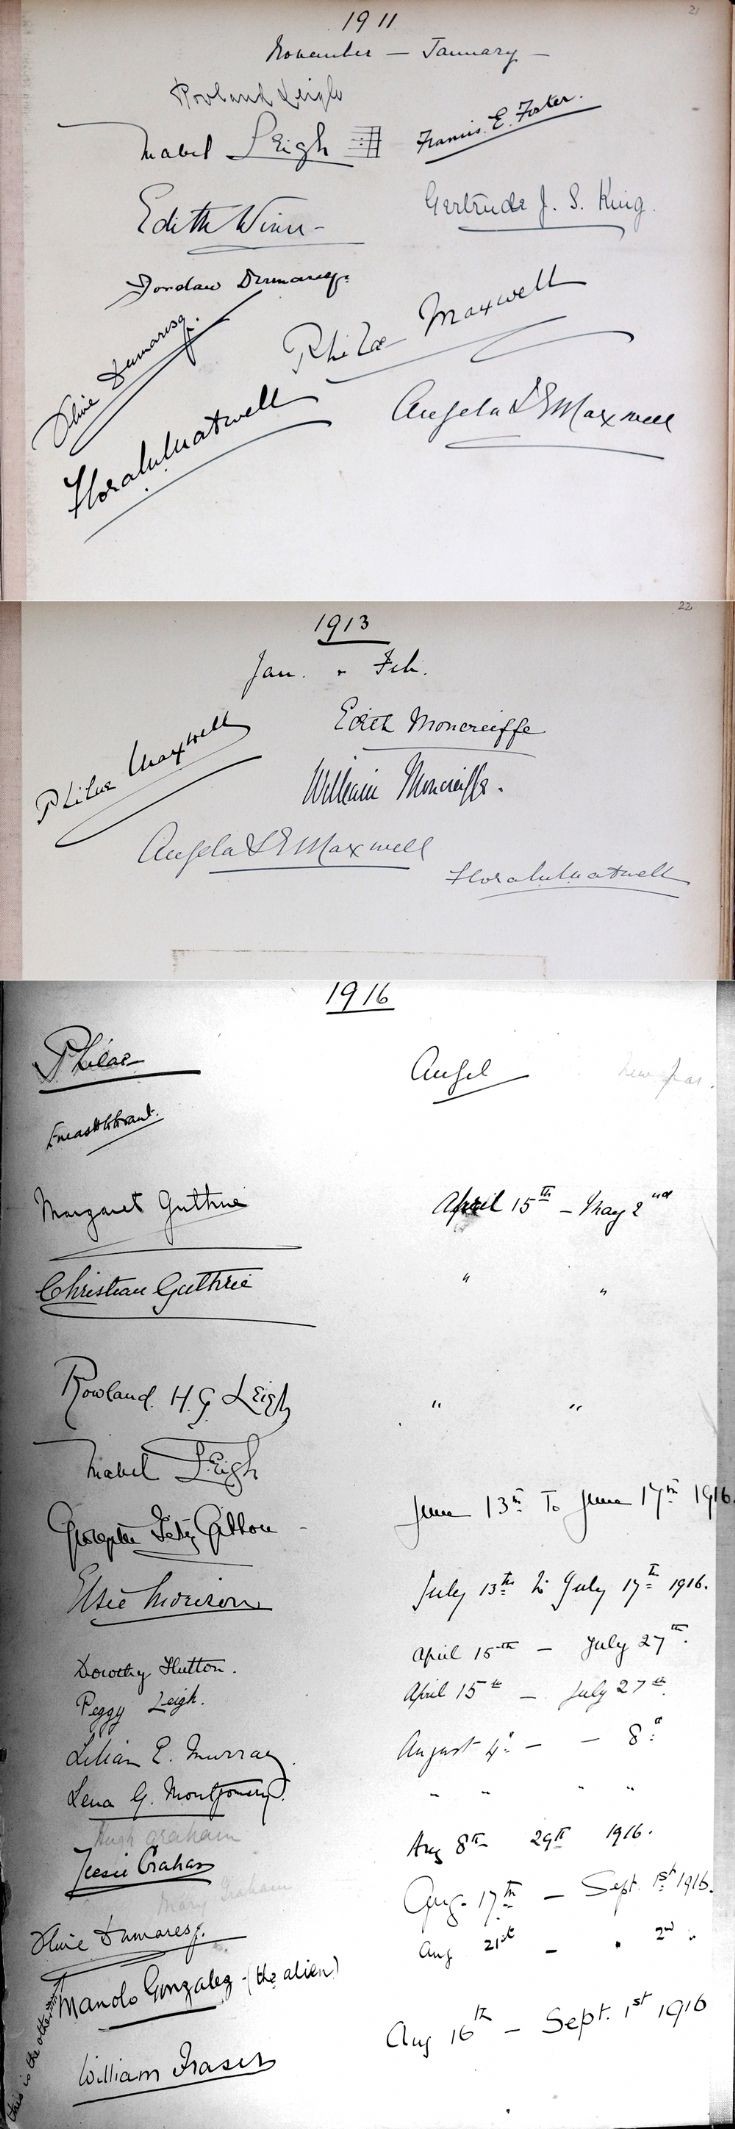 21
1911
November — January —
Rowland Leigh
Mabel Leigh
Francis. E. Foster.
Edith Winn -
Gertrude J. S. King.
Dumaresq.
Olive Dumaresq.
Philae Maxwell
Flora M Maxwell
Angela D E Maxwell
22
1913
Jan. - Feb.
Edith Moncreiffe
Philae Maxwell
William Moncreiffe.
Angela D E Maxwell
Flora M Maxwell
1916
Philae
Angel
New Year.
Margaret Guthrie
April 15th — May 2nd
Christian Guthrie
" "
Rowland. H. G. Leigh
" "
Mabel Leigh
June 13th To June 17th 1916.
Fitz Gibbon -
Elsie Morison
July 13th to July 17th 1916.
Dorothy Hutton.
April 15th — July 27th.
Peggy Leigh.
April 15th — July 27th.
Lilian E. Murray.
August 4th — — 8th
Lena G. Montgomery.
" " " "
Hugh Graham
Jessie Graham
Aug 8th 29th 1916.
Mary Graham
Aug. 17th — Sept. 1st 1916.
Olive Dumaresq.
Aug 21st — " 2nd "
Manolo Gonzalez - (the alien)
this is the other
William Fraser
Aug 16th — Sept. 1st 1916